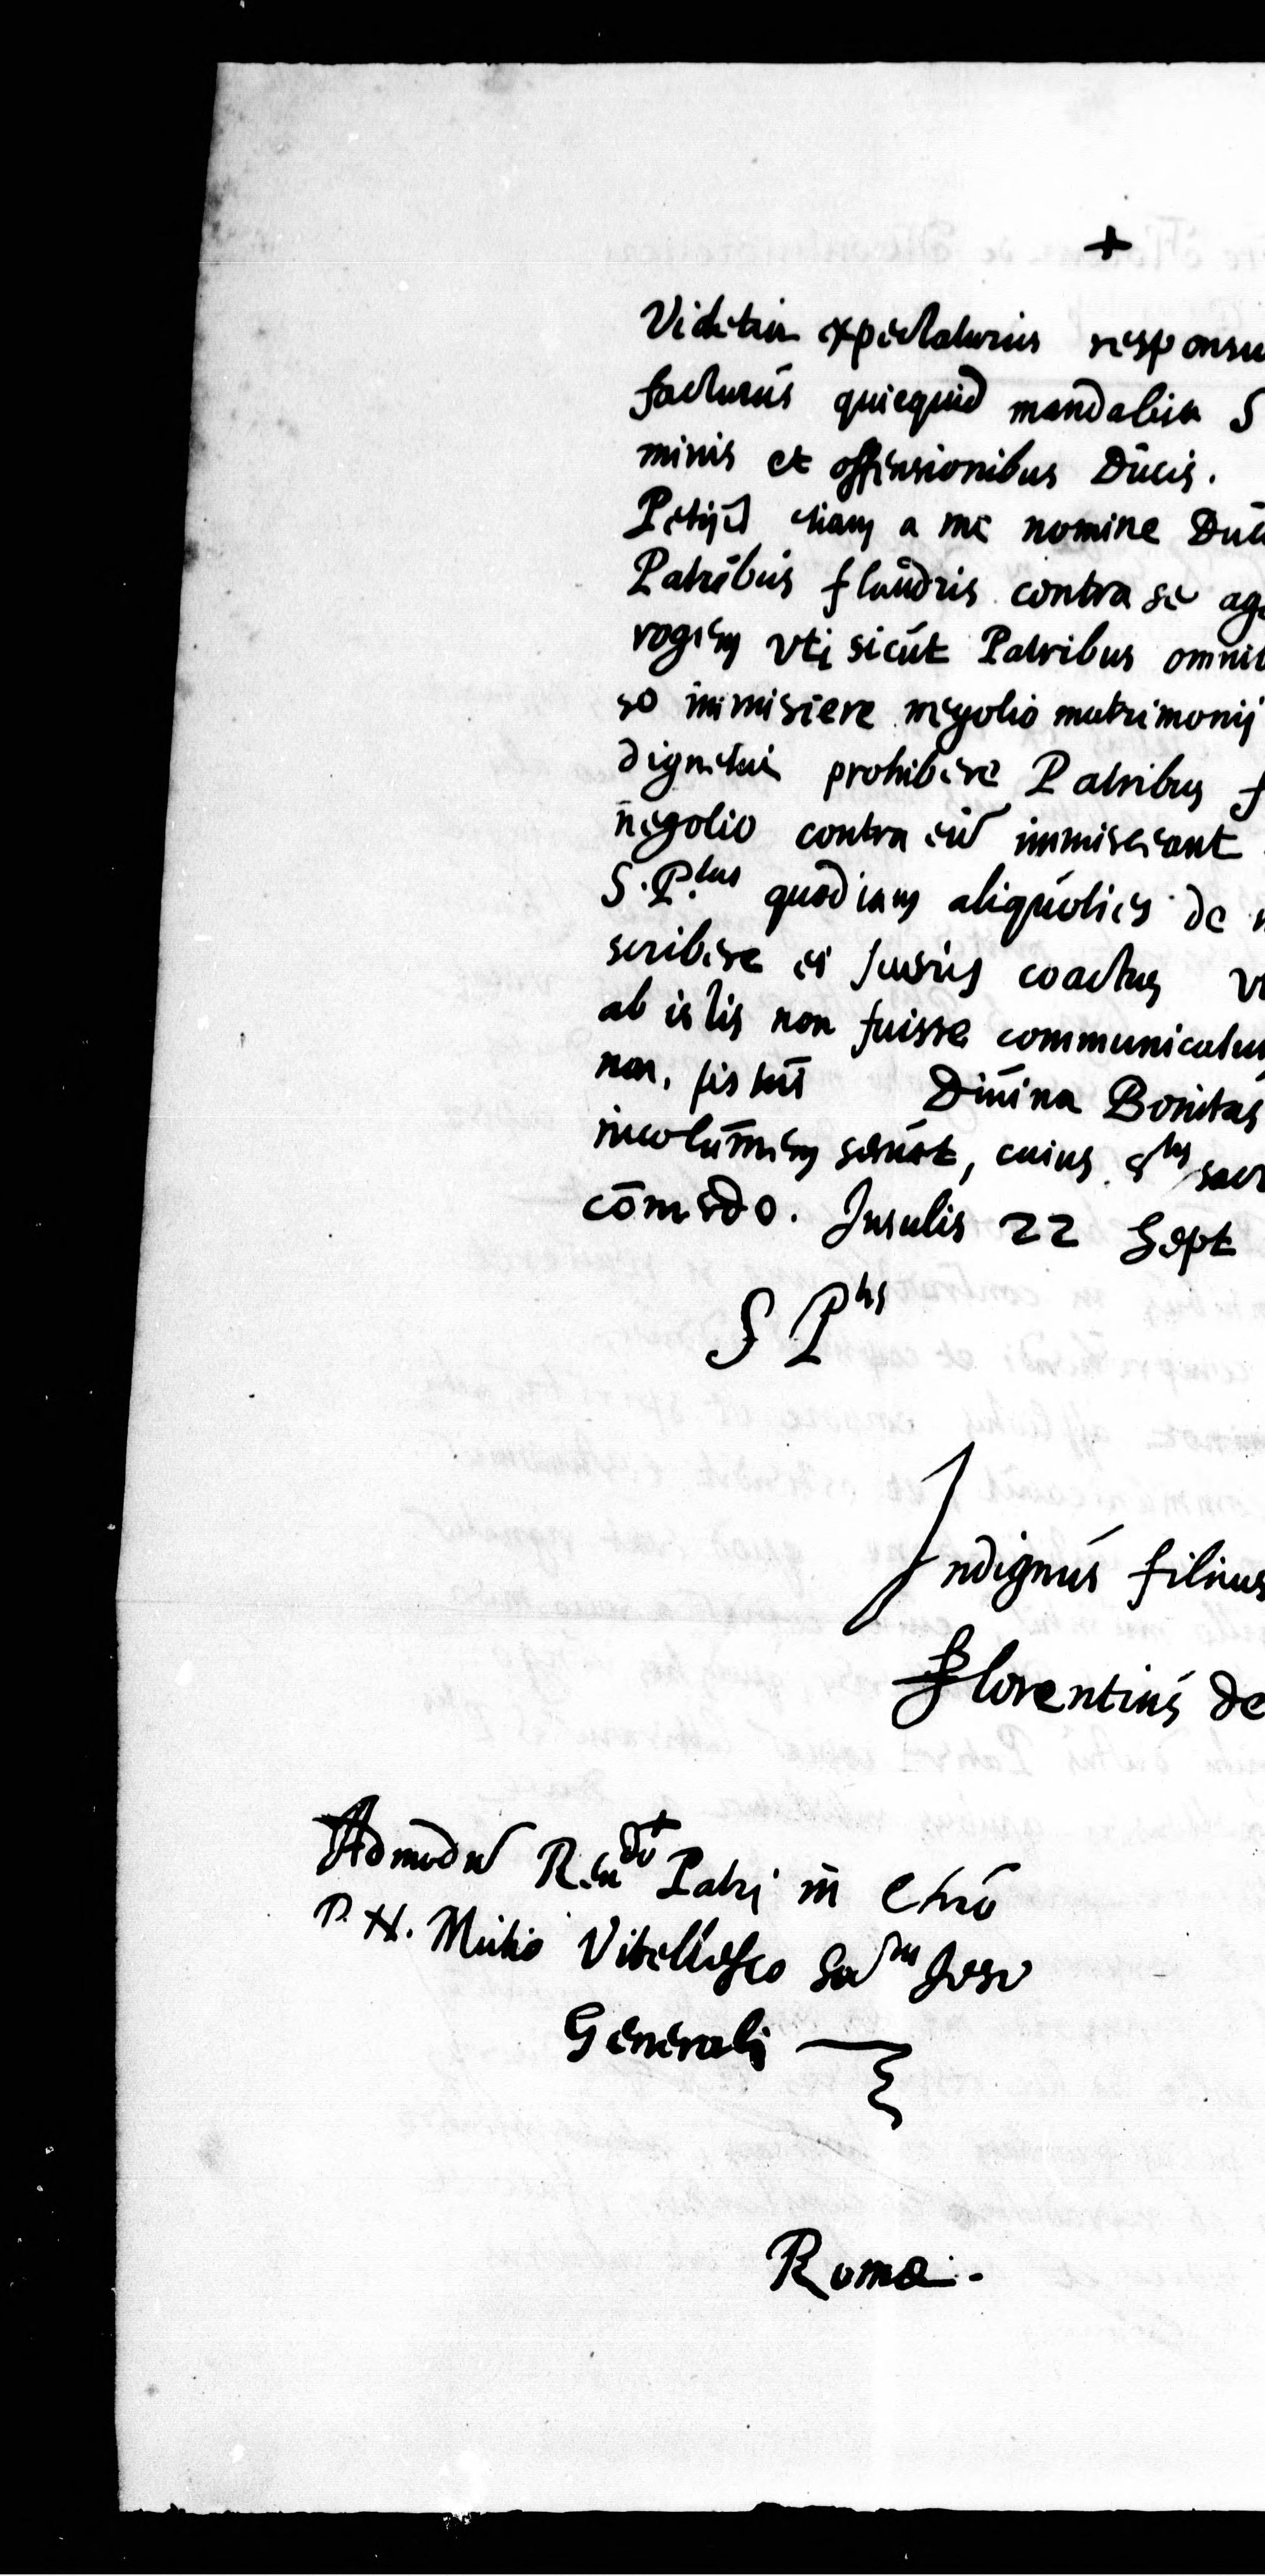 +
Videtur expectaturus responsu
facturus quicquid mandabit S
minis et offensionibus Ducis.
Petijt etiam a me nomine Duc
Patribus flandris contra se ag
rogem vti sicut Patribus omnib
so immiscere negotio matrimonij
dignetur prohibere Patribus f
negotio contra eū immisceant
S. P.tus quod iam aliquoties de
scribere ei coactus v
ab istis non fuisse communicatu
non. Diuina Bonitas
incolumem seruet, cuius sac
cōmēdo. Insulis 22 Sept
S P.tis
Indignus filius
Florentius de
Admodū R.endo Patri in Chrō
P. N. Mutio Vitellesco Soc.tis Jesu
Generali
Roma.